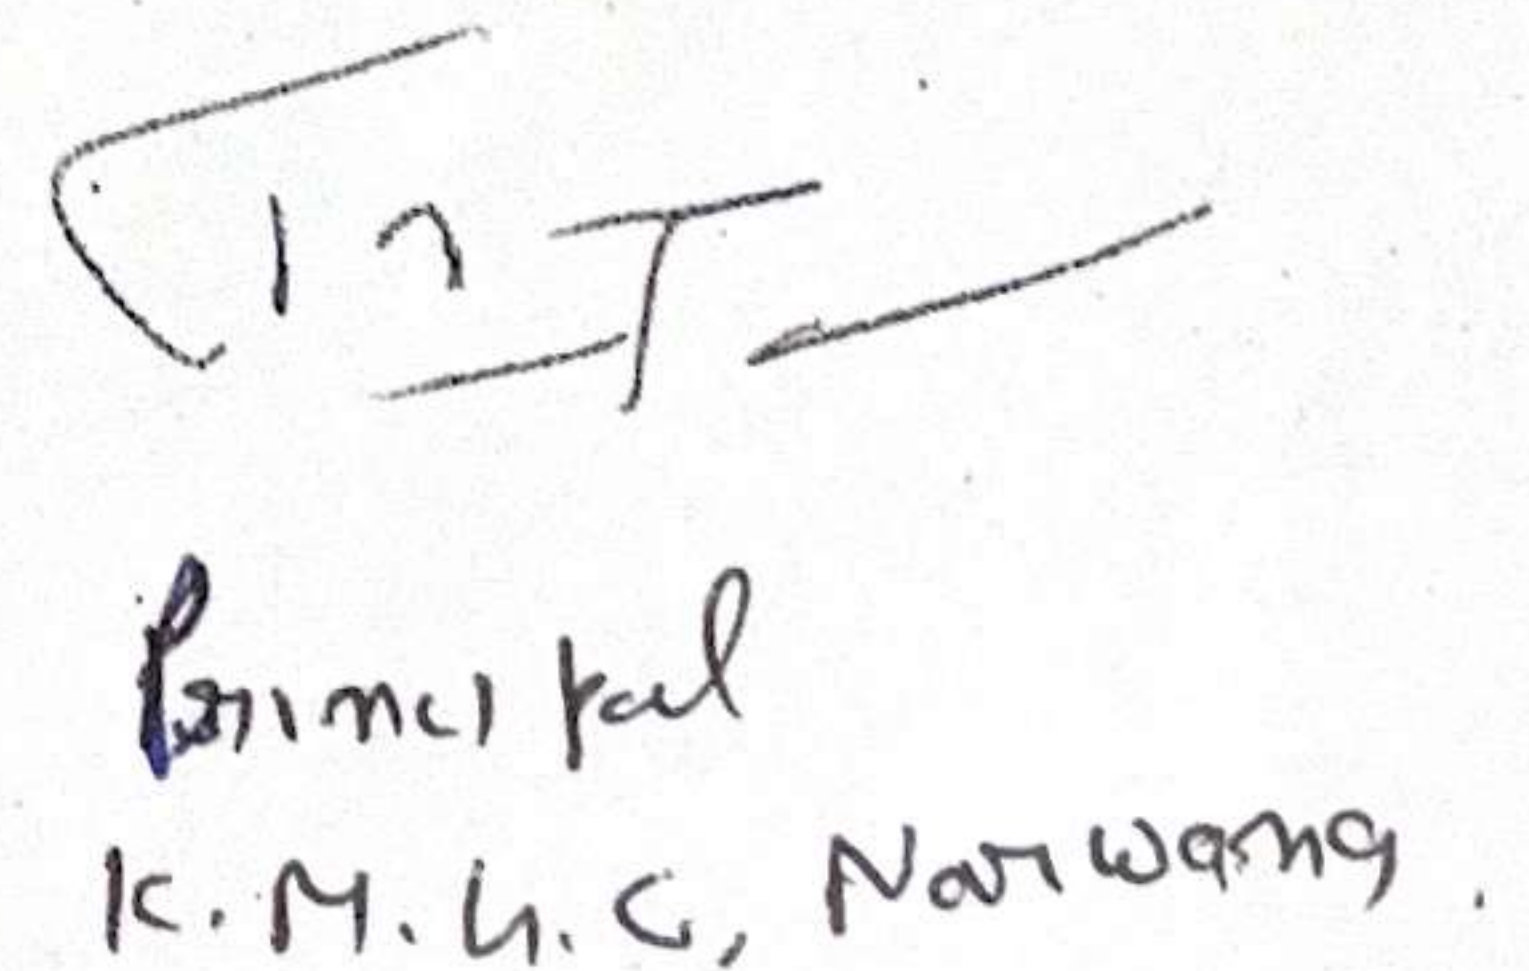 Principal
K.M.G.C, Narwana.